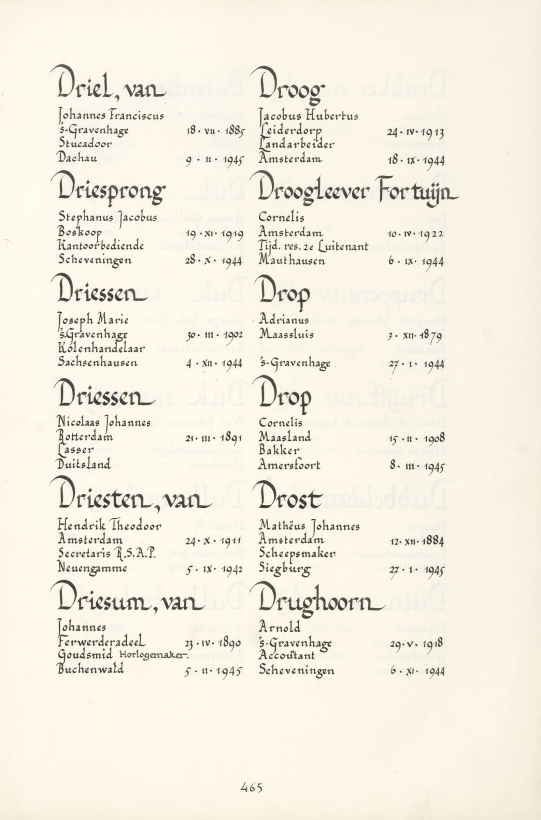 Driel, van
Johannes Franciscus
's-Gravenhage 18 · VII · 1885
Stucadoor
Dachau 9 · II · 1945
Driesprong
Stephanus Jacobus
Boskoop 19 · XI · 1919
Kantoorbediende
Scheveningen 28 · X · 1944
Driessen
Joseph Marie
's-Gravenhage 30 · III · 1902
Kolenhandelaar
Sachsenhausen 4 · XII · 1944
Driessen
Nicolaas Johannes
Rotterdam 21 · III · 1891
Lasser
Duitsland
Driesten, van
Hendrik Theodoor
Amsterdam 24 · X · 1911
Secretaris R.S.A.P.
Neuengamme 5 · IX · 1942
Driesum, van
Johannes
Ferwerderadeel 23 · IV · 1890
Goudsmid Horlogemaker.
Buchenwald 5 · II · 1945
Droog
Jacobus Hubertus
Leiderdorp 24 · IV · 1913
Landarbeider
Amsterdam 18 · IX · 1944
Droogleever Fortuijn
Cornelis
Amsterdam 10 · IV · 1922
Tijd. res. 2e Luitenant
Mauthausen 6 · IX · 1944
Drop
Adrianus
Maassluis 3 · XII · 1879
's-Gravenhage 27 · I · 1944
Drop
Cornelis
Maasland 15 · II · 1908
Bakker
Amersfoort 8 · III · 1945
Drost
Mathëus Johannes
Amsterdam 12 · XII · 1884
Scheepsmaker
Siegburg 27 · I · 1945
Drughoorn
Arnold
's-Gravenhage 29 · V · 1918
Accountant
Scheveningen 6 · XI · 1944
465